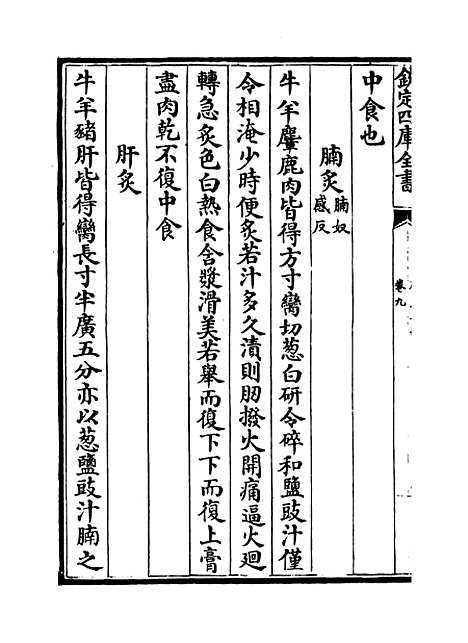 欽定四庫全書
卷九
中食也
腩炙腩奴感反
牛羊麞鹿肉皆得方寸臠切葱白研令碎和鹽豉汁僅
令相淹少時便炙若汁多久漬則肕撥火開痛逼火迴
轉急炙色白熱食含漿滑美若舉而復下下而復上膏
盡肉乾不復中食
肝炙
牛羊豬肝皆得臠長寸半廣五分亦以葱鹽豉汁腩之